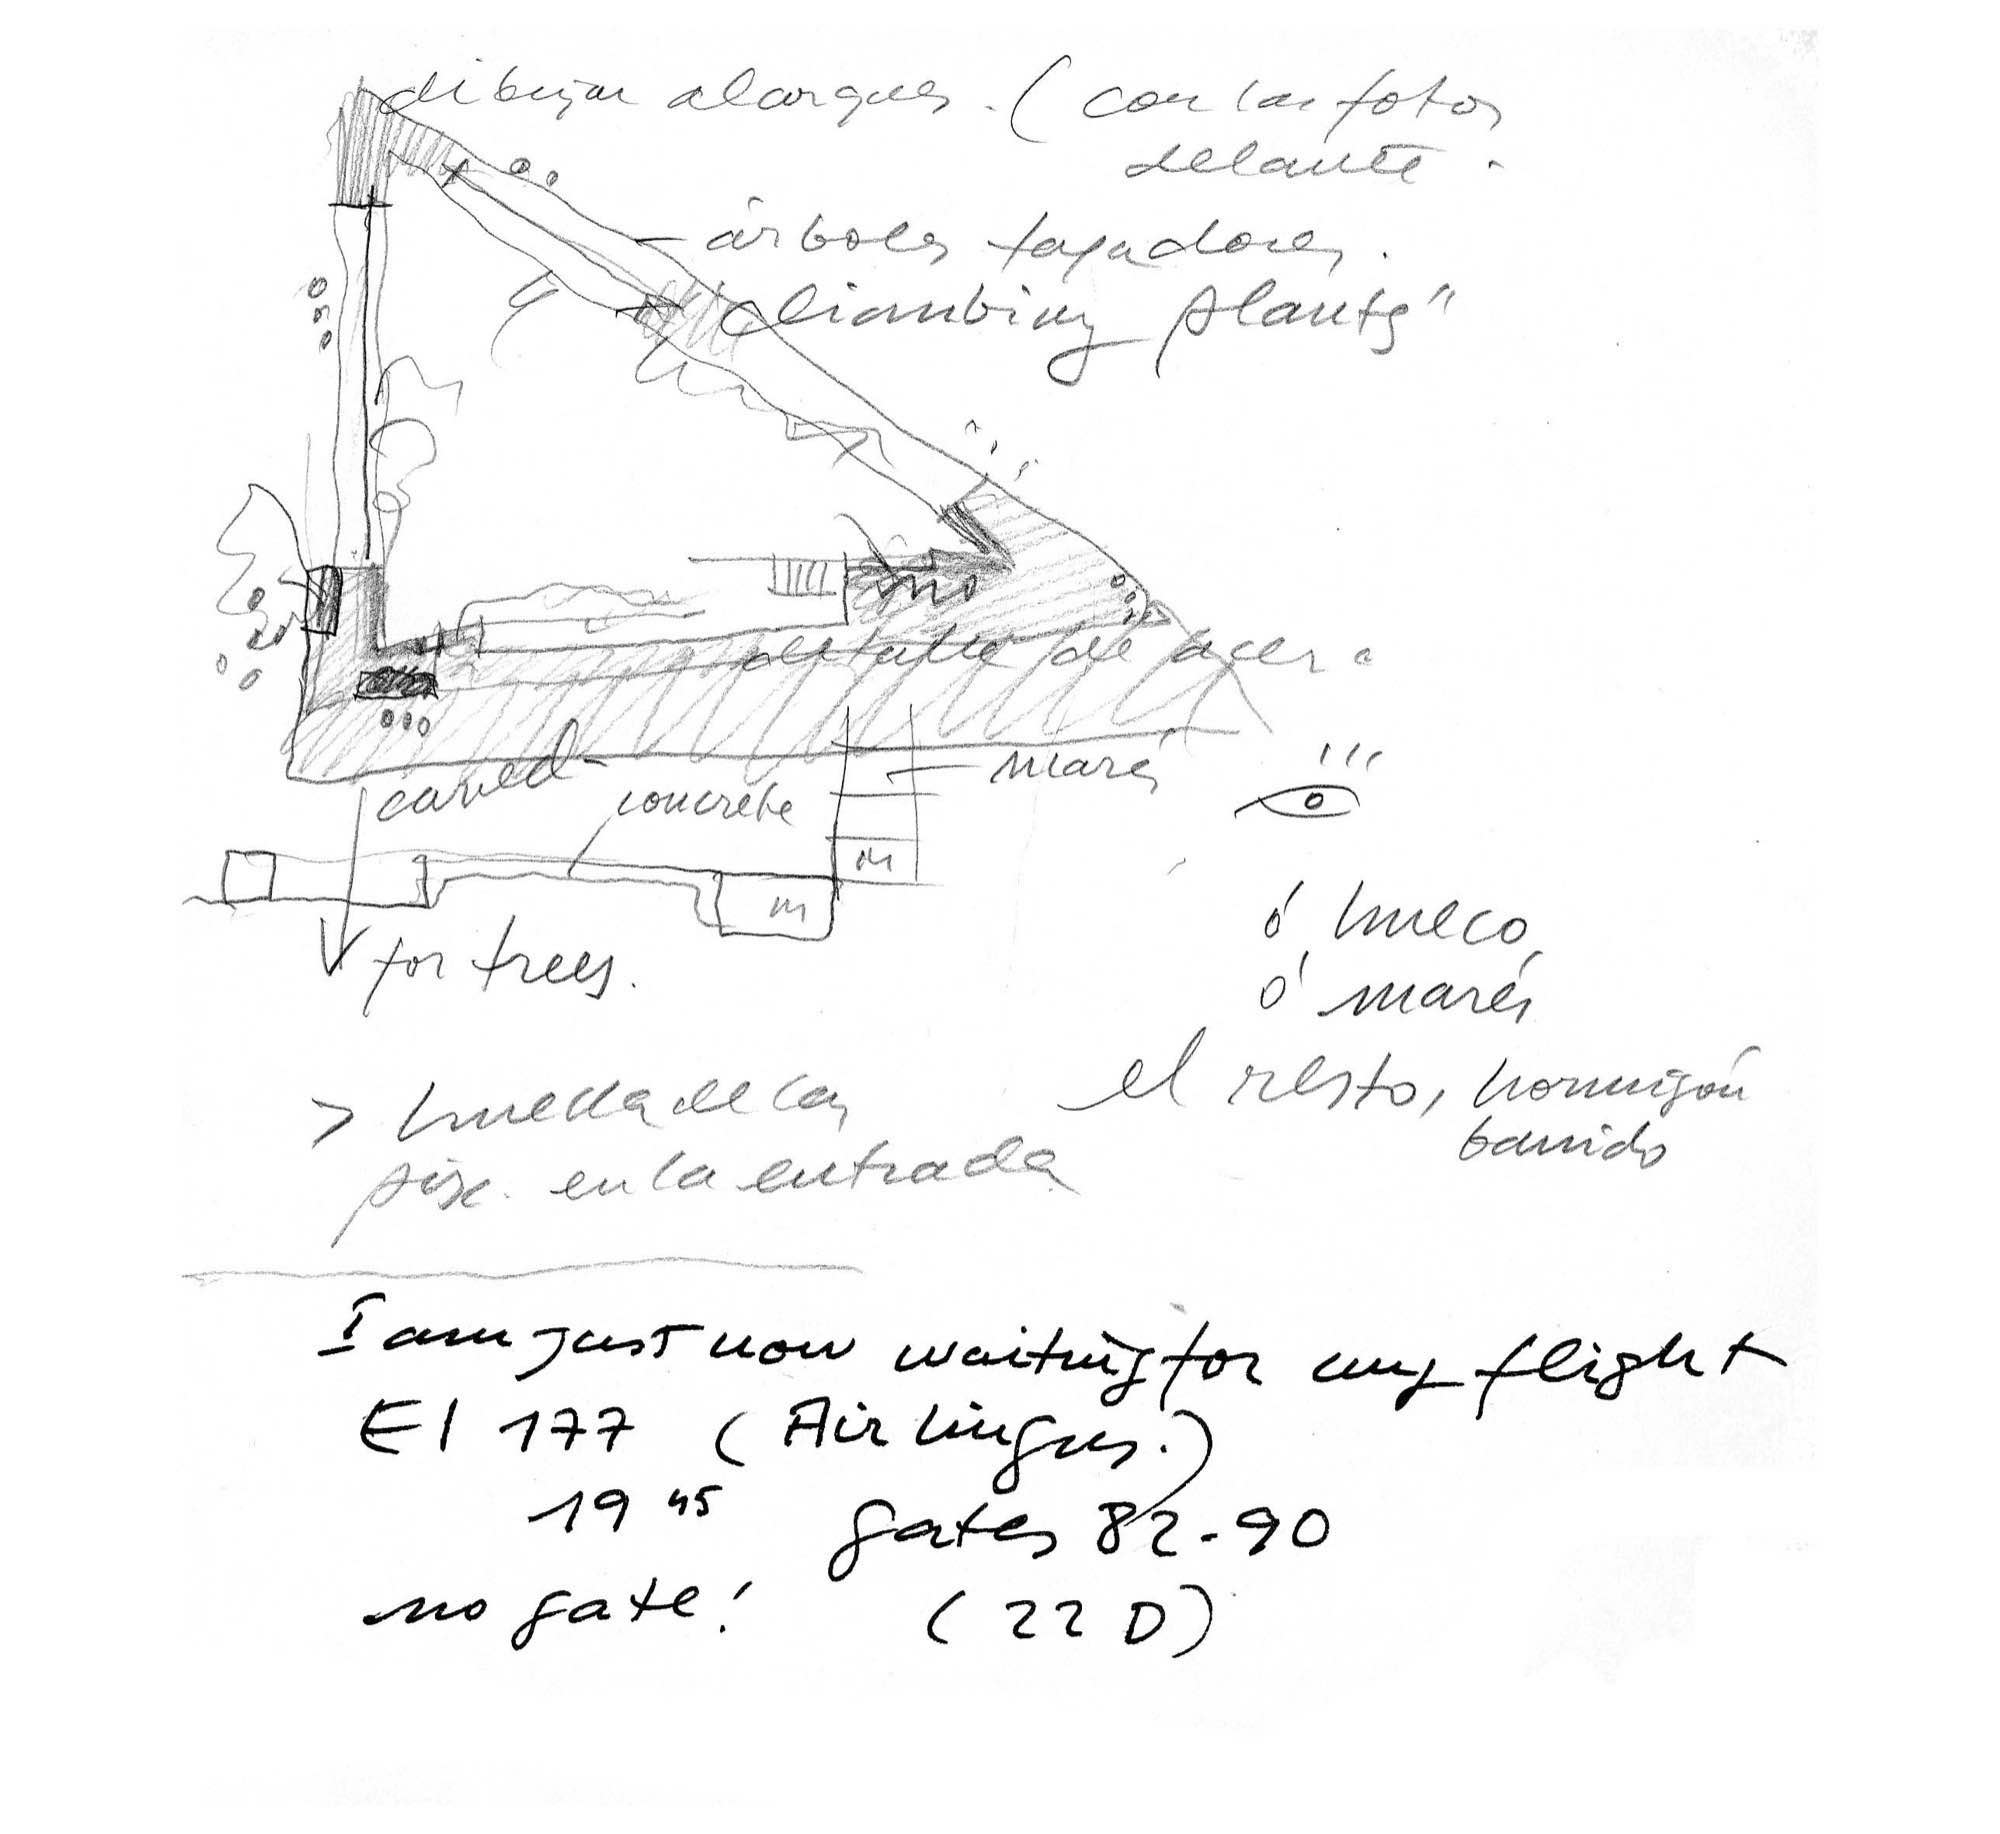 dibujar alcorques. (con las fotos
delante.
árboles tapadores.
"climbing plants"
detalle de acera
carved
concrete
marés
m
m
for trees.
ó hueco,
ó marés,
el resto, hormigón
barrido
> huella de las
pisc. en la entrada
I am just now waiting for my flight
EI 177 (Air lingus.)
19 45 gates 82-90
no gate! (22 D)